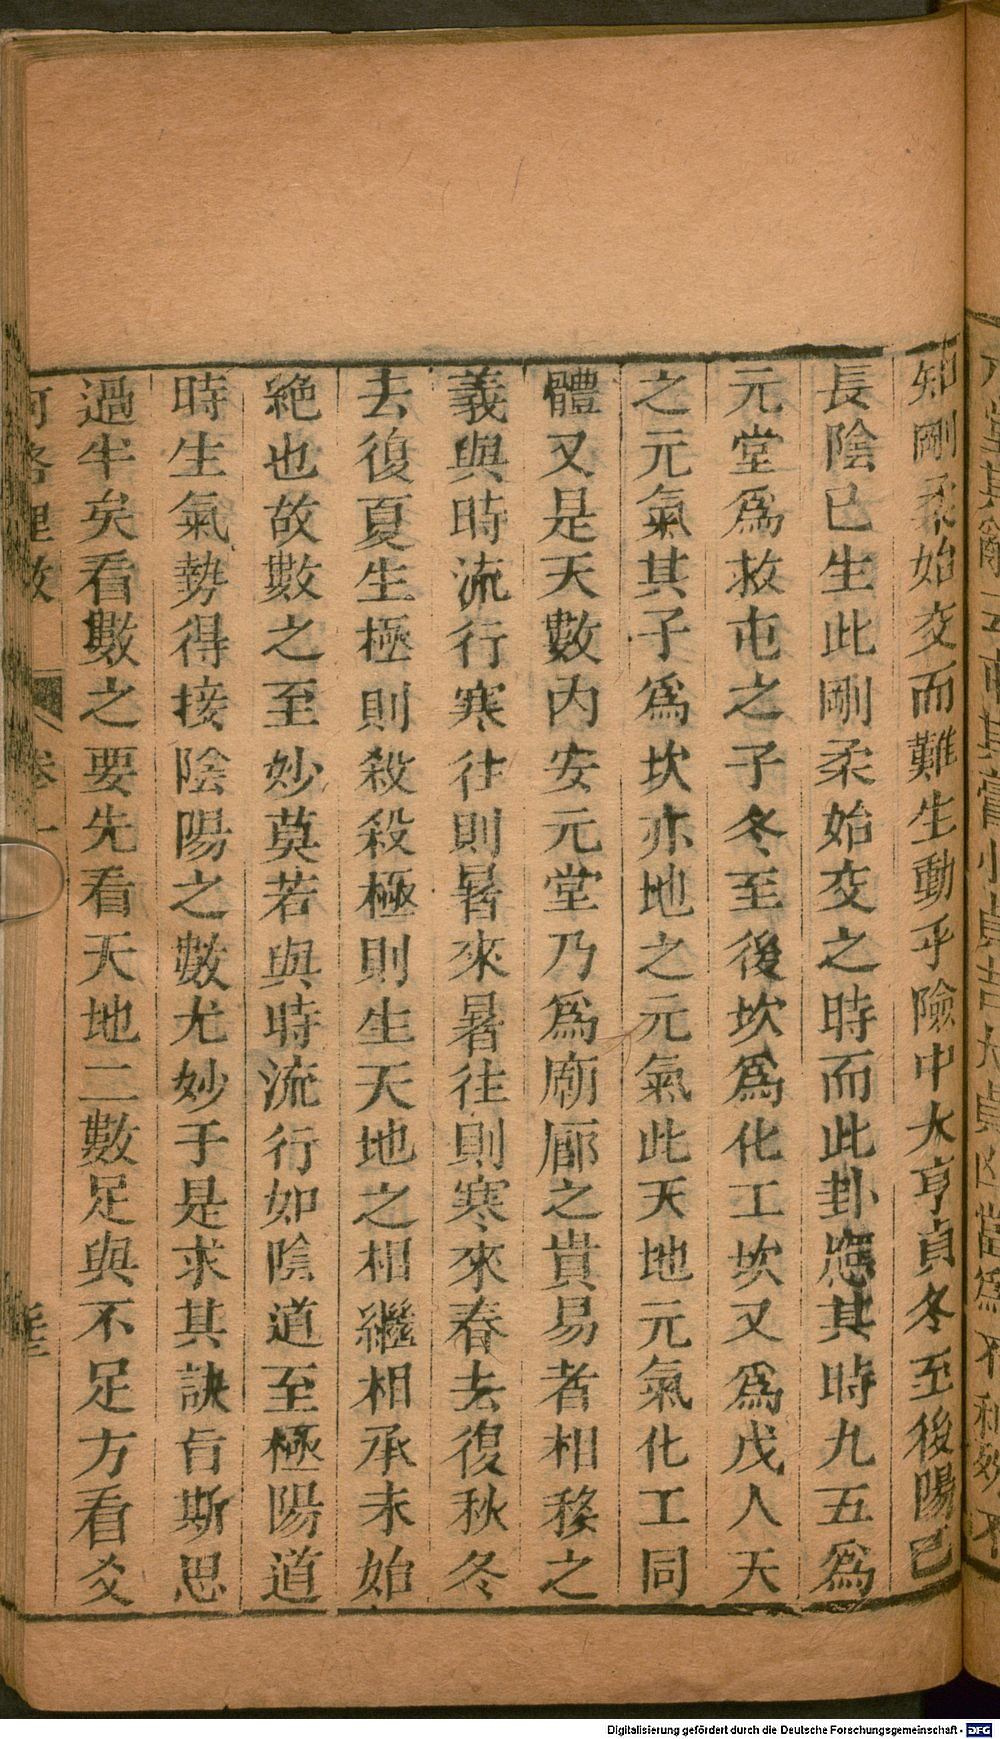 知剛柔始交而難生動乎險中大亨貞冬至後陽已
長陰已生此剛柔始交之時而此卦應其時九五爲
元堂爲救屯之子冬至後坎爲化工坎又爲戊人天
之元氣其子爲坎亦地之元氣此天地元氣化工同
體又是天數內安元堂乃爲廟廊之貴易者相移之
義與時流行寒往則暑來暑往則寒來春去復秋冬
去復夏生極則殺殺極則生天地之相繼相承未始
絶也故數之至妙莫若與時流行如陰道至極陽道
時生氣勢得接陰陽之數尤妙于是求其訣旨斯思
過半矣看數之要先看天地二數足與不足方看爻
河洛理數 卷一
Digitalisierung gefördert durch die Deutsche Forschungsgemeinschaft - DFG